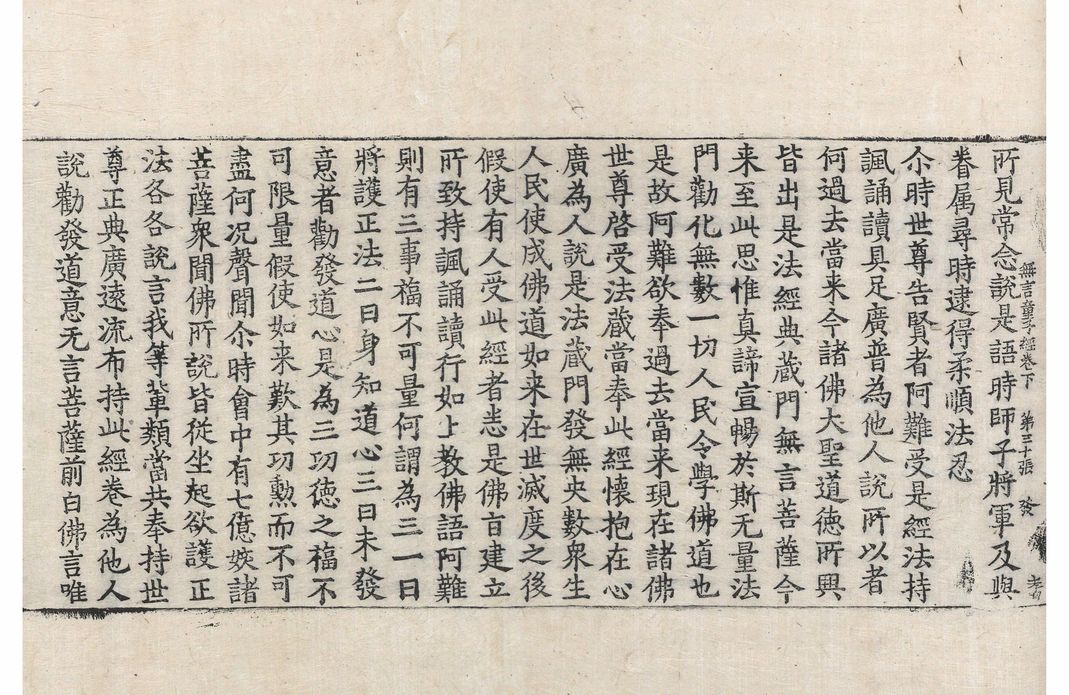 無言童子經卷下 第三十張 發
所見常念說是語時師子將軍及與
眷属尋時逮得柔順法忍
尒時世尊告賢者阿難受是經法持
諷誦讀具足廣普為他人說所以者
何過去當来今諸佛大聖道德所興
皆出是法經典蔵門無言菩薩今
来至此思惟真諦宣暢於斯无量法
門勸化無數一切人民令學佛道也
是故阿難欲奉過去當来現在諸佛
世尊啓受法蔵當奉此經懷抱在心
廣為人說是法蔵門發無央數衆生
人民使成佛道如来在世滅度之後
假使有人受此經者悉是佛旨建立
所致持諷誦讀行如上教佛語阿難
則有三事福不可量何謂為三一曰
將護正法二曰身知道心三曰未發
意者勸發道心是為三功徳之福不
可限量假使如来歎其功勲而不可
盡何况聲聞尒時會中有七億姟諸
菩薩衆聞佛所說皆從坐起欲護正
法各各說言我等輩類當共奉持世
尊正典廣遠流布持此經卷為他人
說勸發道意无言菩薩前白佛言唯